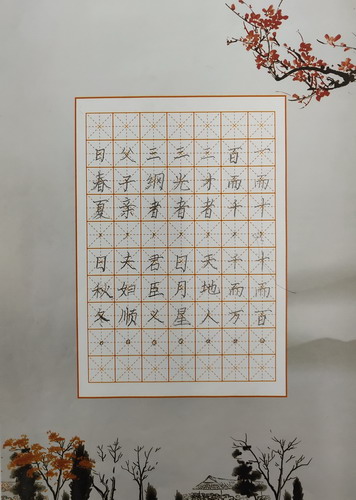 一而十，十而百。
百而千，千而万。
三才者，天地人。
三光者，日月星。
三纲者，君臣义。
父子亲，夫妇顺。
曰春夏，曰秋冬。